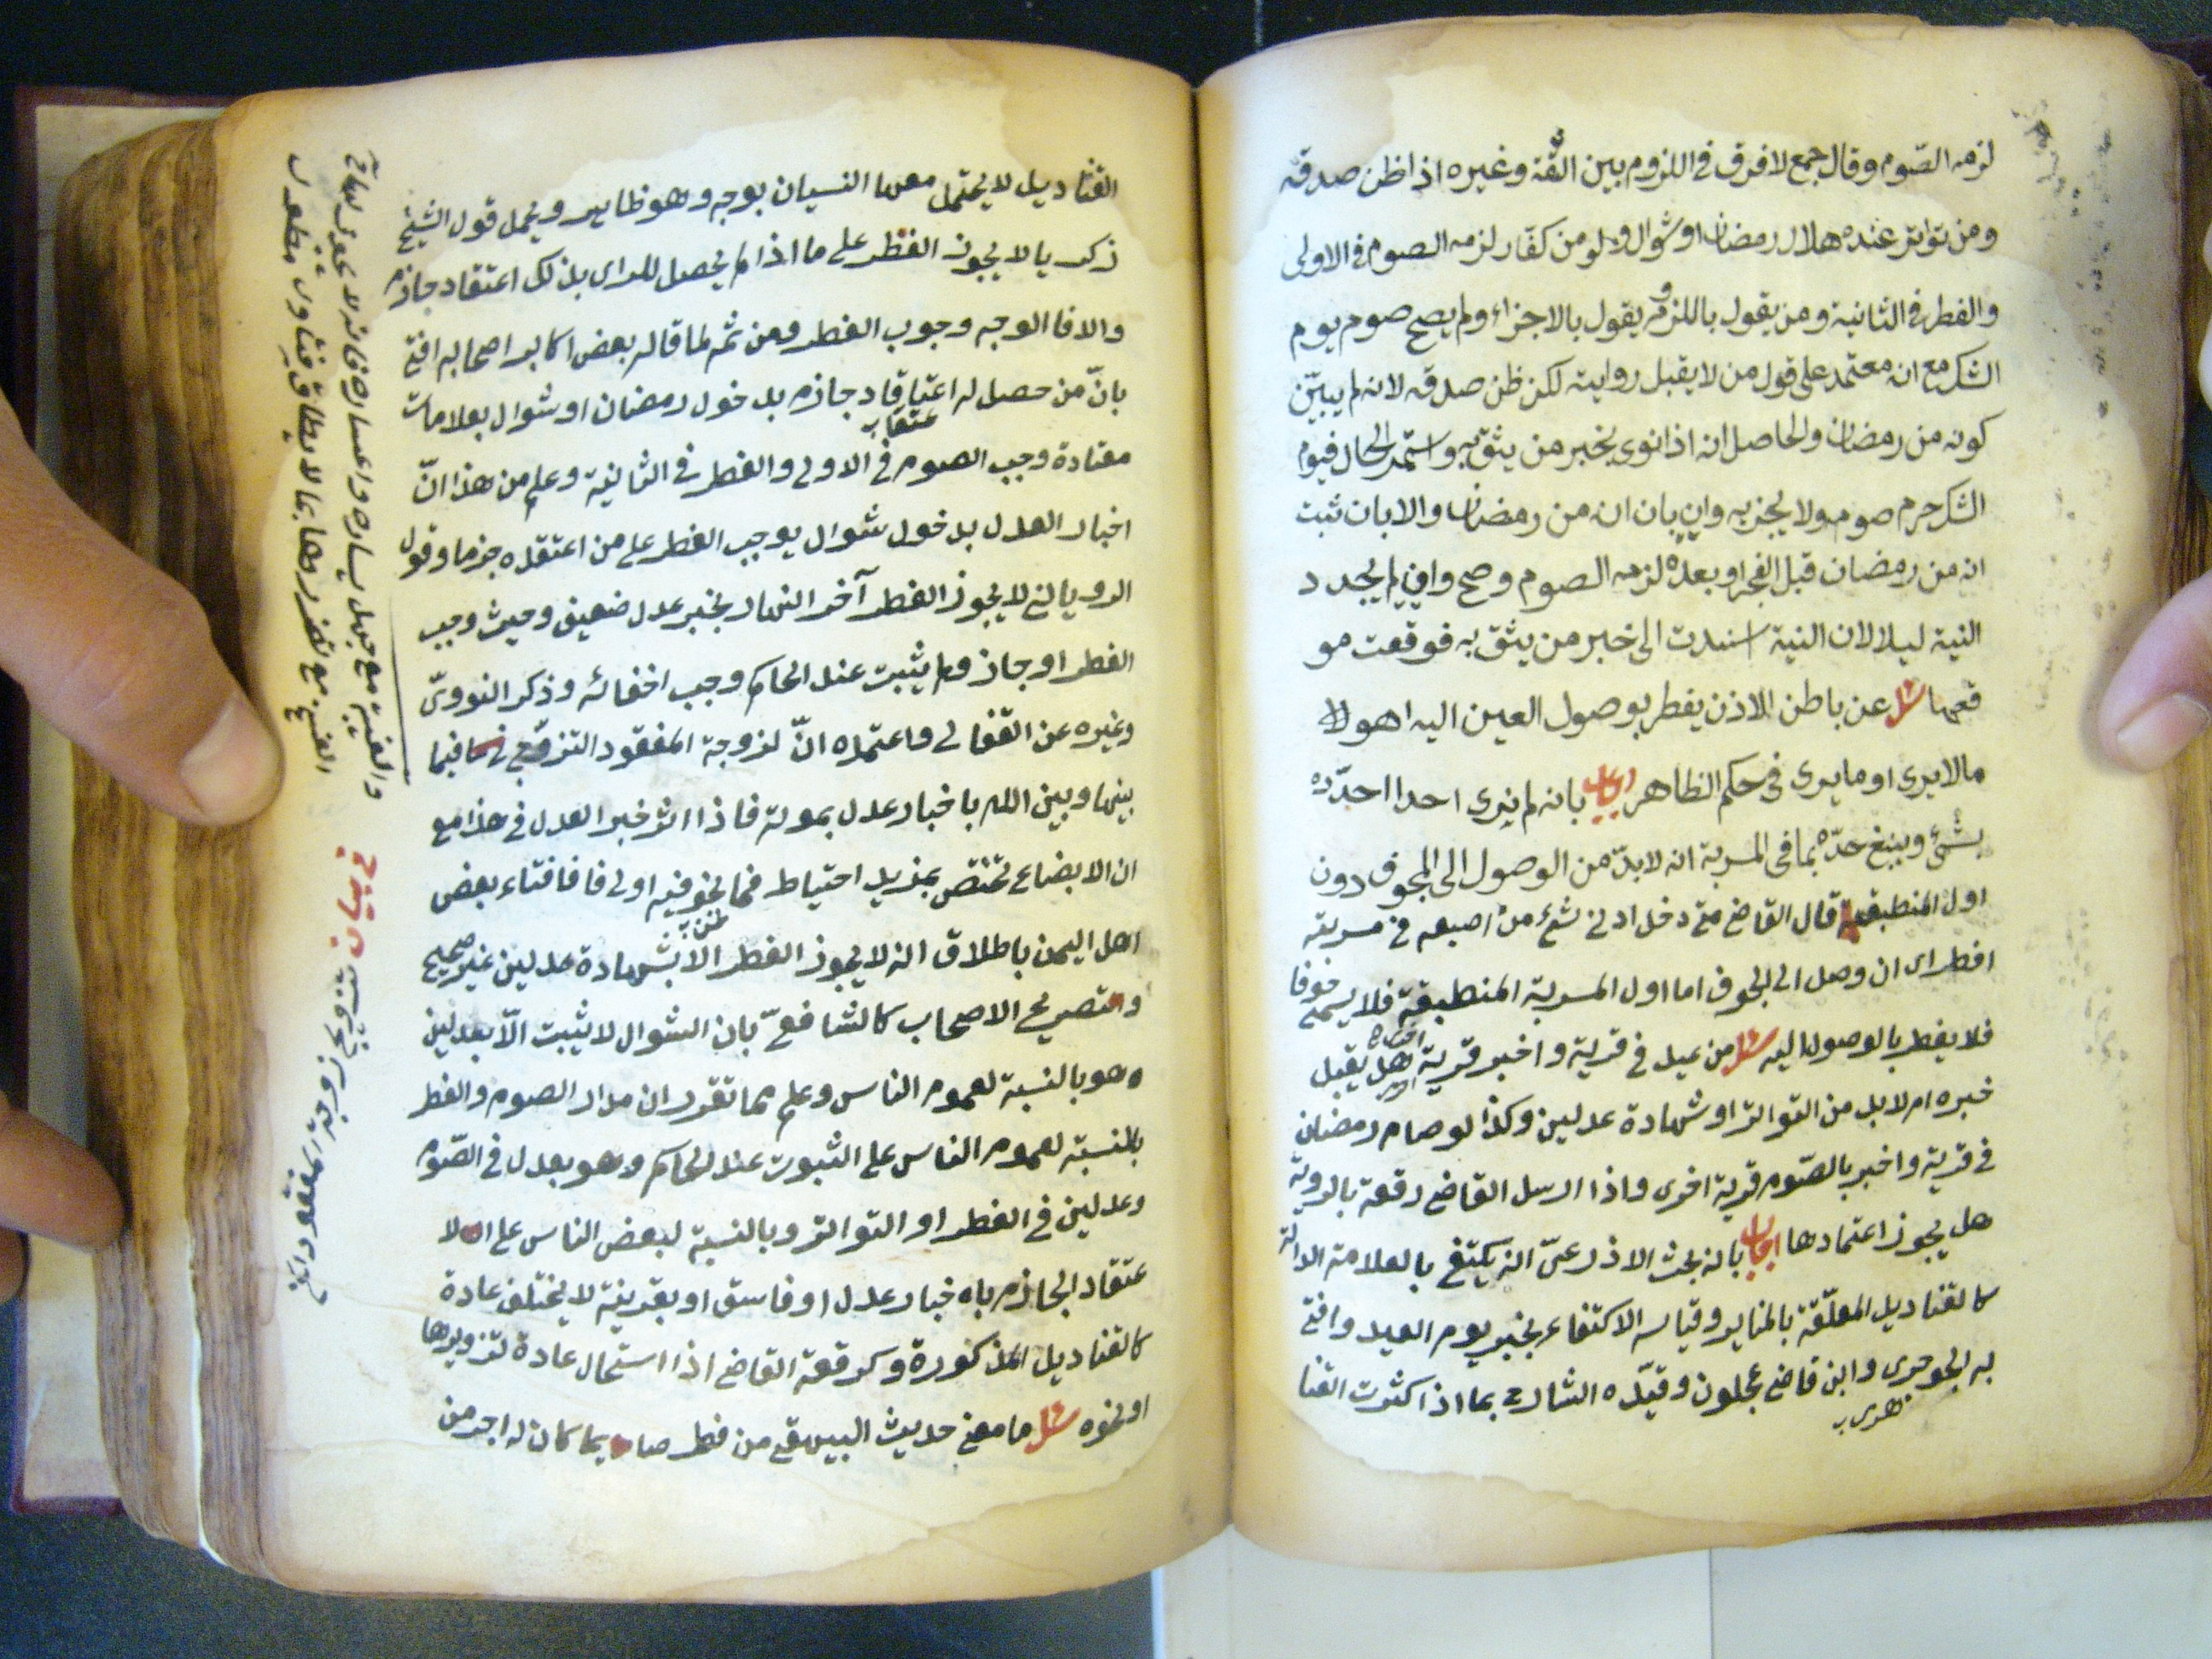 لزمه الصوم وقال جمع لا فرق في اللزوم بين الثقة وغيره اذا ظن صدقه
ومن تواتر عنده هلال رمضان او شوال ولو من كفار لزمه الصوم في الاولى
والفطر في الثانية ومن يقول باللزوم يقول بالاجزاء ولم يصح صوم يوم
الشك مع انه معتمد على قول من لا يقبل روايته لكن ظن صدقه لانه لم يبين
كونه من رمضان والحاصل انه اذا نوى بخبر من يثق به واستمر الحال فيوم
الشك حرم صومه ولا يجزيه وان بان انه من رمضان والا بان ثبت
انه من رمضان قبل الفجر او بعده لزمه الصوم وصح وان لم يجدد
النية ليلا لان النية استندت الى خبر من يثق به فوقعت مو
قعها سئل عن باطن الاذن يفطر بوصول العين اليه اهو
ما لا يرى او ما يرى في حكم الظاهر اجاب بانه لم نرى احدا حدده
بشئ وينبغي حده بما في المسربة انه لا بد من الوصول الى المجوف دون
اول المنطبقة قال القاضي متى دخل ادنى شئ من اصبعه في مسربته
افطر اى ان وصل الى المجوف اما اول المسربة المنطبقة فلا يسمى جوفا
فلا يفطر بالوصول اليه سئل من عيد في قرية واخبر قرية اخرى هل يقبل
خبره ام لا بد من التواتر او شهادة عدلين وكذا لو صام رمضان
في قرية واخبر بالصوم قرية اخرى واذا ارسل القاضي رقعة بالروية
هل يجوز اعتمادها اجاب بانه بحث الاذرعي انه يكتفي بالعلامة الدالة
كالقناديل المعلقة بالمناير وقياسه الاكتفاء بخبر يوم العيد وافتى
به الجوجرى وابن قاضي عجلون وقيده الشارح بما اذا كثرت القنا
القناديل لا يحتمل معها النسيان بوجه وهو ظاهر ويحمل قول الشيخ
زكريا لا يجوز الفطر على ما اذا لم يحصل للراى بذلك اعتقاد جازم
والا فالوجه وجوب الفطر ومن ثم لما قاله بعض اكابر اصحابه افتى
بان من حصل له اعتقاد جازم بدخول رمضان او شوال بعلامات
معتادة وجب الصوم في الاولى والفطر في الثانية وعلم من هذا ان
اخبار العدل بدخول شوال يوجب الفطر على من اعتقده جزما وقول
الرويانى لا يجوز الفطر آخر النهار بخبر عدل ضعيف وحيث وجب
الفطر او جاز ولم يثبت عند الحاكم وجب اخفائه وذكر النووى
وغيره عن القفالى واعتمده ان لزوجة المفقود التزوج فيما
بينها وبين الله باخبار عدل بموته فاذا اثر خبر العدل في هذا مع
ان الابضاع تختص بمزيد احتياط فما نحن فيه اولى فافتاء بعض
اهل اليمن باطلاق انه لا يجوز الفطر الا بشهادة عدلين غير صحيح
وتصريح الاصحاب كالشافعى بان الشوال لا يثبت الا بعدلين
وهو بالنسبة لعموم الناس وعلم مما تقرر ان مدار الصوم والفطر
بالنسبة لعموم الناس على الثبوت عند الحاكم وهو بعدل في الصوم
وعدلين في الفطر او التواتر وبالنسبة لبعض الناس على الا
عتقاد الجازم باخبار عدل او فاسق او بقرينة لا يختلف عادة
كالقناديل المذكورة وكرقعة القاضي اذا استحال عادة تزويرها
او نحوه سئل ما معنى حديث البيهقى من فطر صايما كان له اجر من
في بيان تزويج زوجة المفقود